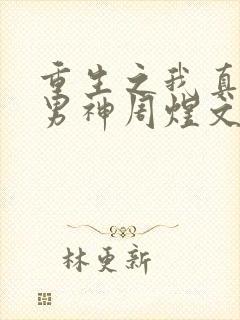 重生之我真
男神周煌文
林更新